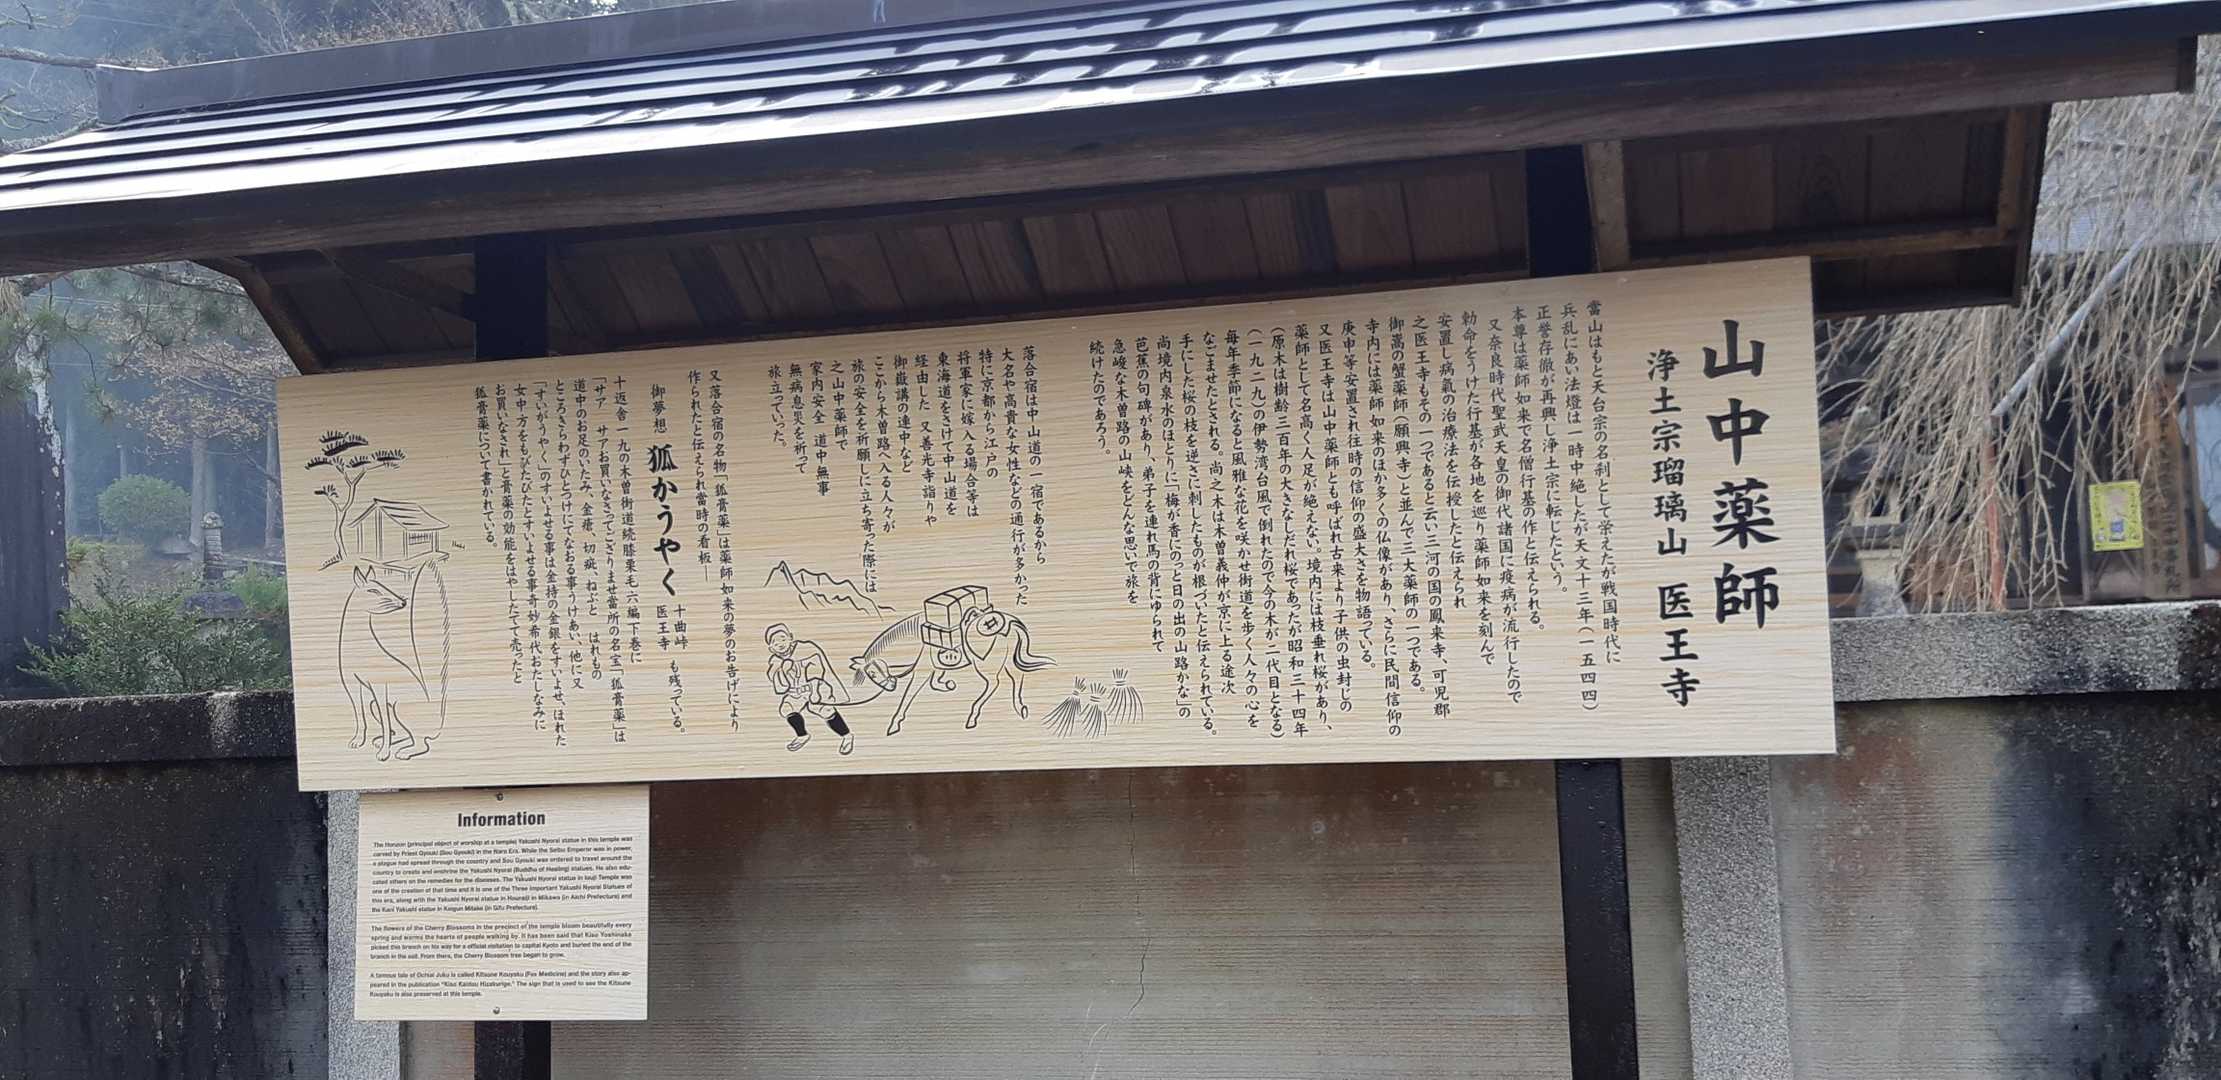 山中薬師
浄土宗瑠璃山 医王寺
當山はもと天台宗の名刹として栄えたが戦国時代に
兵乱にあい法燈は一時中絶したが天文十三年(一五四四)
正誉存徹が再興し浄土宗に転じたという。
本尊は薬師如来で名僧行基の作と伝えられる。
又奈良時代聖武天皇の御代諸国に疫病が流行したので
勅命をうけた行基が各地を巡り薬師如来を刻んで
安置し病氣の治療法を伝授したと伝えられ
之医王寺もその一つであると云い三河の国の鳳来寺、可児郡
御嵩の蟹薬師(願興寺)と並んで三大薬師の一つである。
寺内には薬師如来のほか多くの仏像があり、さらに民間信仰の
庚申等安置され往時の信仰の盛大さを物語っている。
又医王寺は山中薬師とも呼ばれ古来より子供の虫封じの
薬師として名高く人足が絶えない。境内には枝垂れ桜があり、
(原木は樹齢三百年の大きなしだれ桜であったが昭和三十四年
(一九二九)の伊勢湾台風で倒れたので今の木が二代目となる)
毎年季節になると風雅な花を咲かせ街道を歩く人々の心を
なごませたとされる。尚之木は木曽義仲が京に上る途次
手にした桜の枝を逆さに刺したものが根づいたと伝えられている。
尚境内泉水のほとりに「梅が香にのっと日の出の山路かな」の
芭蕉の句碑があり、弟子を連れ馬の背にゆられて
急峻な木曽路の山峡をどんな思いで旅を
続けたのであろう。
落合宿は中山道の一宿であるから
大名や高貴な女性などの通行が多かった
特に京都から江戸の
将軍家に嫁入る場合等は
東海道をさけて中山道を
経由した 又善光寺詣りや
御嶽講の連中など
ここから木曽路へ入る人々が
旅の安全を祈願しに立ち寄った際には
之山中薬師で
家内安全 道中無事
無病息災を祈って
旅立っていった。
又落合宿の名物「狐膏薬」は薬師如来の夢のお告げにより
作られたと伝えられ當時の看板―
御夢想 狐かうやく 十曲峠 医王寺 も残っている。
十返舎一九の木曽街道続膝栗毛六編下巻に
「サア サアお買いなさってござりませ當所の名宝「狐膏薬」は
道中のお足のいたみ、金瘡、切疵、ねぶと はれもの
ところきらわずひとつけにてなおる事うけあい、他に又
「すいがうやく」のすいよせる事は金持の金銀をすいよせ、ほれた
女中方をもぴたぴたとすいよせる事奇妙希代おたしなみに
お買いなされ」と膏薬の効能をはやしたてて売ったと
狐膏薬について書かれている。
Information
The Honzon (principal object of worship at a temple) Yakushi Nyorai statue in this temple was
carved by Priest Gyouki (Sou Gyouki) in the Nara Era. While the Seibu Emperor was in power,
a plague had spread through the country and Sou Gyouki was ordered to travel around the
country to create and enshrine the Yakushi Nyorai (Buddha of Healing) statues. He also edu-
cated others on the remedies for the diseases. The Yakushi Nyorai statue in Iouji Temple was
one of the creation of that time and it is one of the Three Important Yakushi Nyorai Statues of
this era, along with the Yakushi Nyorai statue in Houraiji in Mikawa (in Aichi Prefecture) and
the Kani Yakushi statue in Kougun Mitake (in Gifu Prefecture).
The flowers of the Cherry Blossoms in the precinct of the temple bloom beautifully every
spring and warms the hearts of people walking by. It has been said that Kiso Yoshinaka
picked this branch on his way for a official visitation to capital Kyoto and buried the end of the
branch in the soil. From there, the Cherry Blossom tree began to grow.
A famous tale of Ochiai Juku is called Kitsune Kouyaku (Fox Medicine) and the story also ap-
peared in the publication "Kiso Kaidou Hizakurige." The sign that is used to see the Kitsune
Kouyaku is also preserved at this temple.